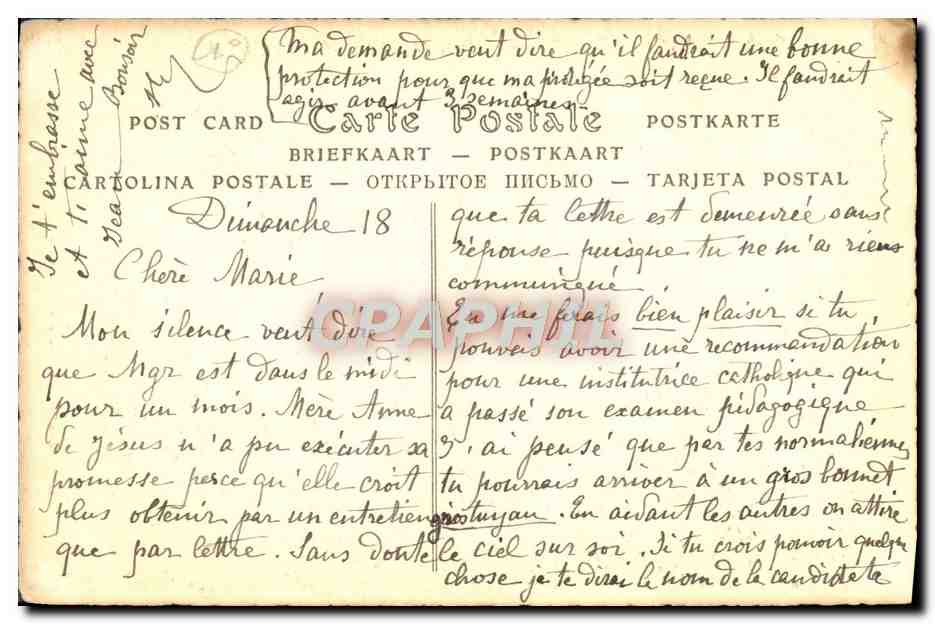 Dimanche 18
Chère Marie
Mon silence veut dire
que Mgr est dans le midi
pour un mois. Mère Anne
de Jésus n'a pu exécuter sa
promesse parce qu'elle croit
plus obtenir par un entretien
que par lettre. Sans doute
que ta lettre est demeurée sans
réponse puisque tu ne m'as rien
communiqué
Tu me ferais bien plaisir si tu
pouvais avoir une recommandation
pour une institutrice catholique qui
a passé son examen pédagogique
J'ai pensé que par tes normaliennes
tu pourrais arriver à un gros bonnet
gros tuyau. En aidant les autres on attire
le ciel sur soi. Si tu crois pouvoir quelque
chose je te dirai le nom de la candidate
Ma demande veut dire qu'il faudrait une bonne
protection pour que ma protégée soit reçue. Il faudrait
agir avant 3 semaines
Je t'embrasse
et t'aime avec
Jean Bonsoir
POST CARD Carte Postale POSTKARTE
BRIEFKAART — POSTKAART
CARTOLINA POSTALE — ОТКРЫТОЕ ПИСЬМО — TARJETA POSTAL
CPAPHIL